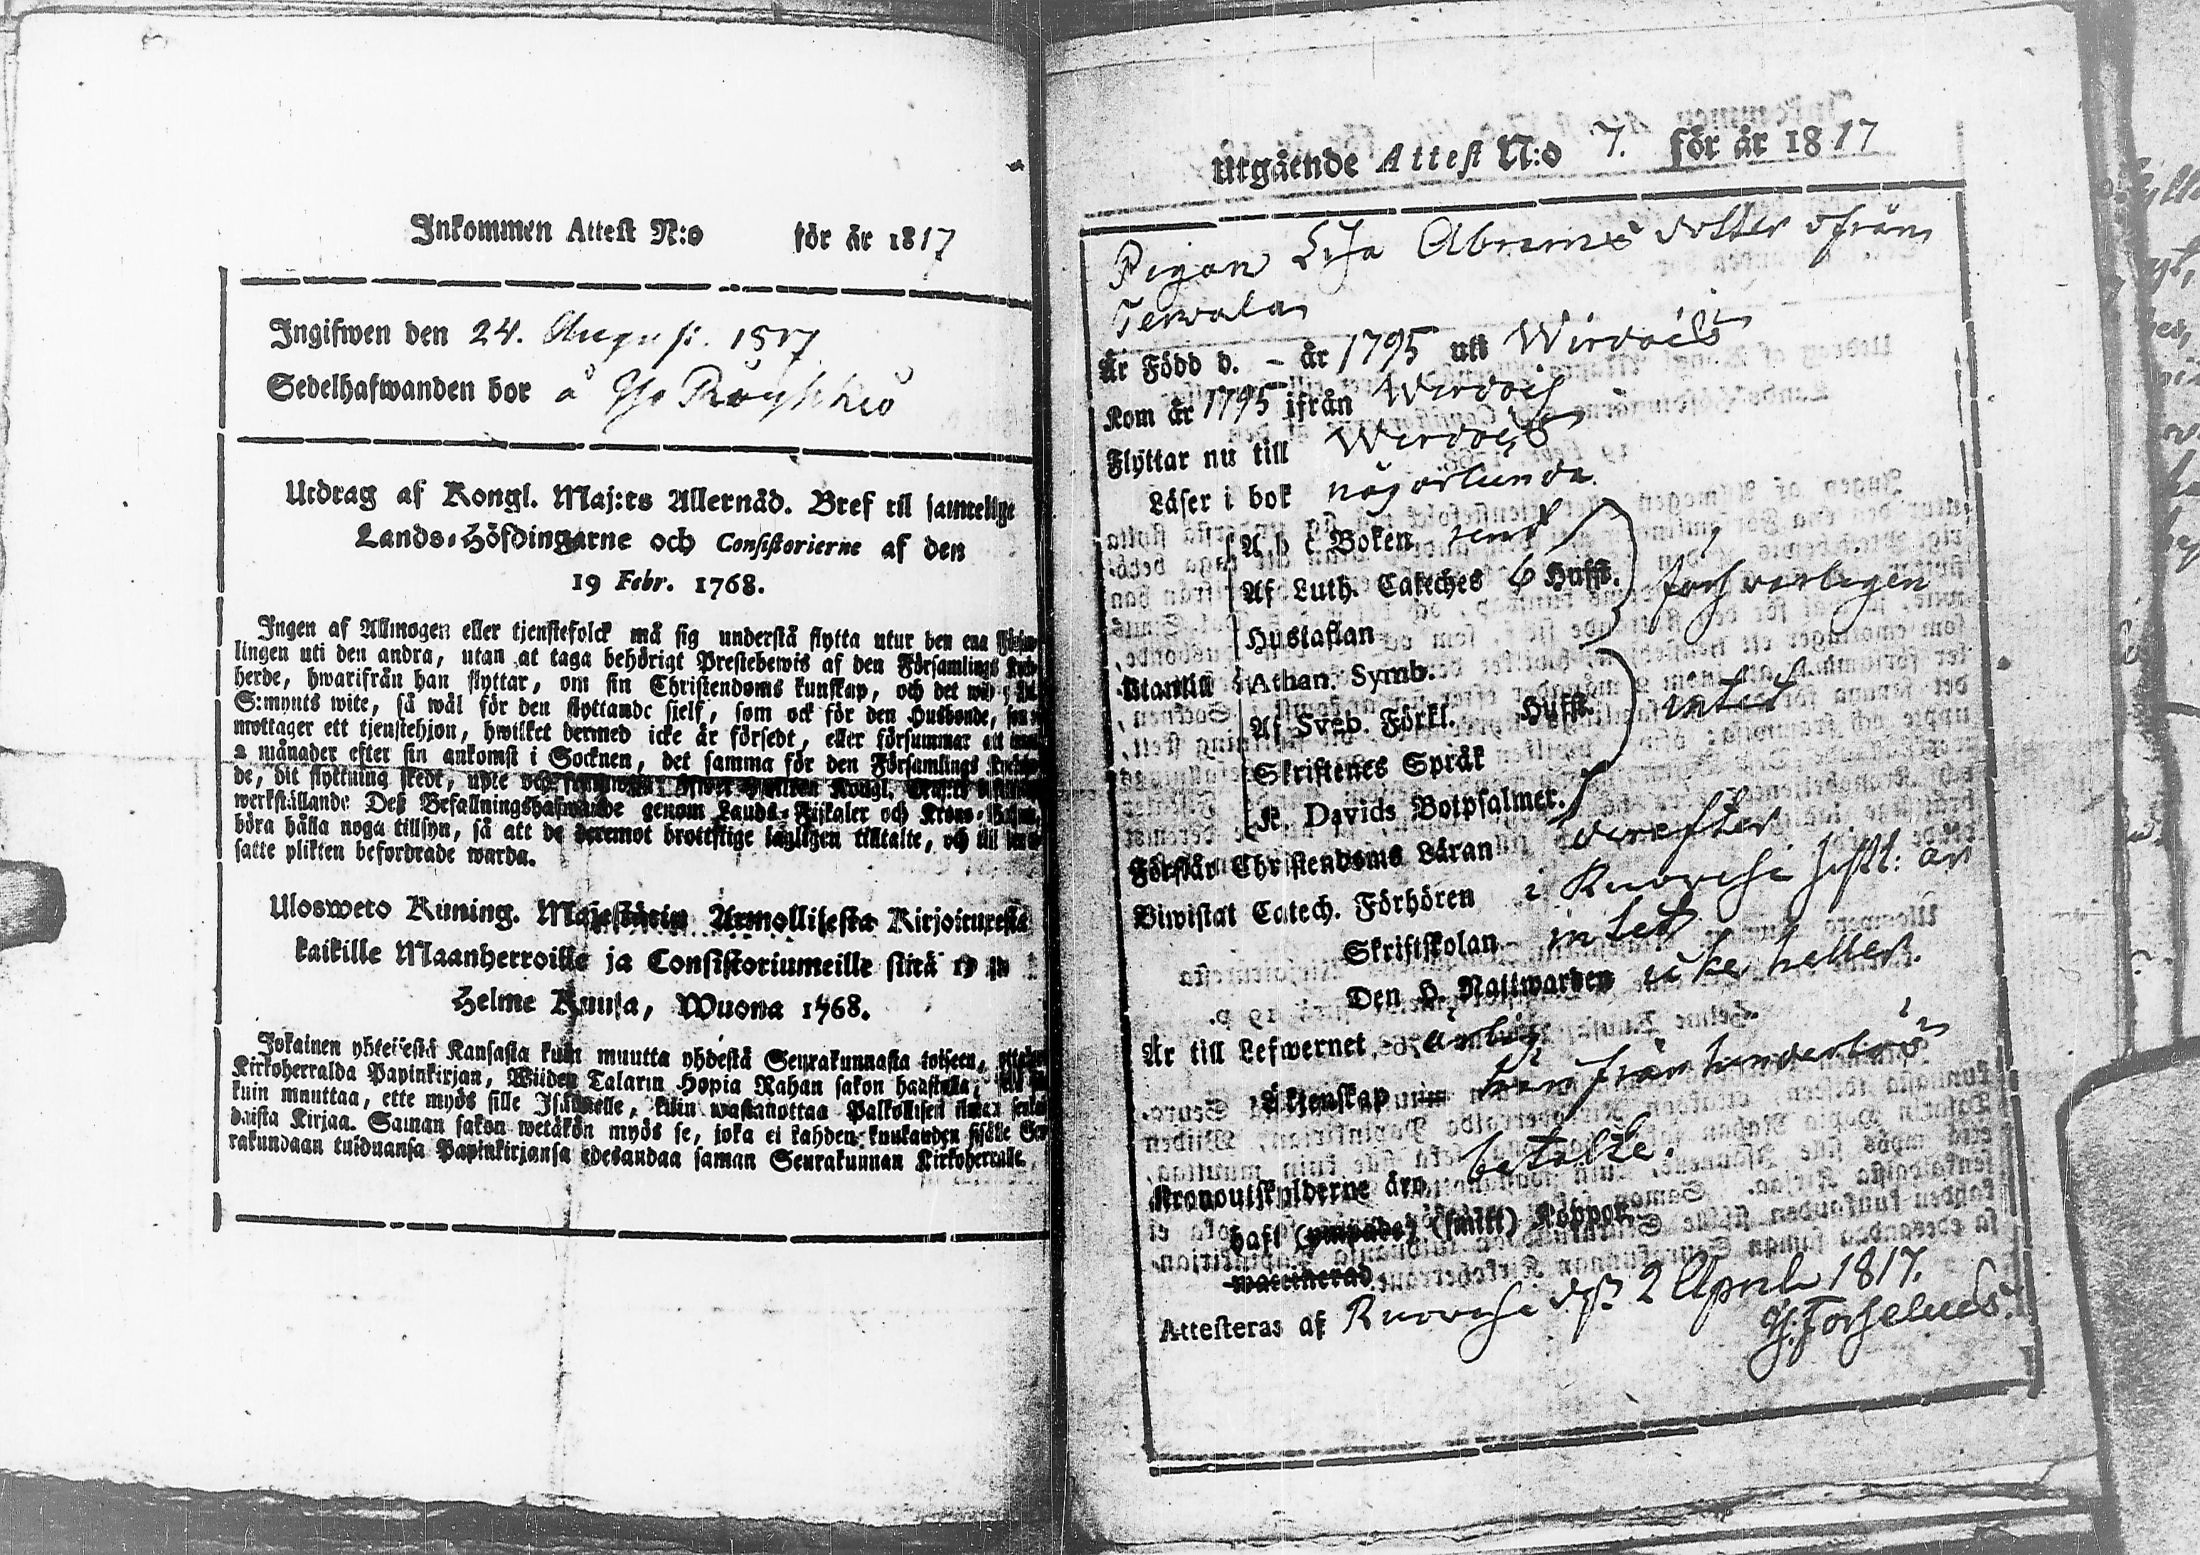 Inkommen Attest N:o för år 1817
Ingifwen den 24. August. 1817
Sedelhafwanden bor å
Utdrag af Kongl. Maj:ts Allernåd. Bref til samtelige
Lands-Höfdingarne och Consistorierne af den
19 Febr. 1768.
Ingen af Allmogen eller tjenstefolck må sig understå flytta utur den ena
lingen uti den andra, utan at taga behörigt Prestebewis af den Församlings
herde, hwarifrån han flyttar, om sin Christendoms kunskap, och det wid
S:mynts wite, så wäl för den flyttande sielf, som ock för den Husbonde,
mottager ett tjenstehjon, hwilket dermed icke är försedt, eller försummar att
2 månader efter sin ankomst i Socknen, det samma för den Församlings
de, dit flyttning skedt, upte och Kongl.
werkställande Deß Befallningshafwande genom Lands-Fiskaler och Krono-
böra hålla noga tillsyn, så att de deremot brottslige lagligen tilltalte, och till
satte plikten befordrade warda.
Ulosweto Kuning. Majestätin Armollisesta Kirjoituxesta
kaikille Maanherroille ja Consistoriumeille siitä 19 p.
Helme Kuusa, Wuona 1768.
Jokainen yhteisestä Kansasta kuin muutta yhdestä Seurakunnasta toiseen,
Kirkoherralda Papinkirjan, Wiiden Talarin Hopia Rahan sakon haastolla,
kuin muuttaa, ette myös sille Isännelle, kuin wastanottaa Palkollisen ilman
daista Kirjaa. Saman sakon wetäkön myös se, joka ei kahden kuukauden sisälle Seu-
rakundaan tulduansa Papinkirjansa edesandaa saman Seurakunnan Kirkoherralle.
Utgående Attest N:o 7. för år 1817
Pigan Lisa Abrams dotter ifrån
Terwala
Är Född d. – år 1795 uti Wirdois
Kom år 1795 ifrån Wirdois
Flyttar nu till Wirdois
Läser i bok någorlunda.
A. b c Boken
Af Luth. Cateches 6 Hufst. försvarligen
Hustaflan
Utantill Athan. Symb.
Af Sveb. Förkl. Hufst. intet
Skriftenes Språk
K. Davids Botpsalmer.
Förstår Christendoms Läran derefter
Biwistat Catech. Förhören i Ruovesi
Skriftskolan intet
Den H. Nattwarden icke heller.
Är till Lefwernet ärlig
Äktenskap fri från hinderlös
Kronoutskylderne äro betalte.
haft (ympade) (smitt) Koppor
waccinerad
Attesteras af Ruovesi d. 2 April 1817.
H: Forselius.